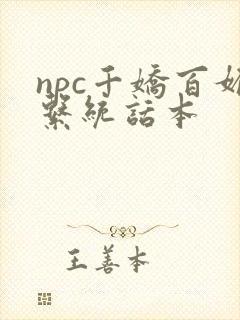 npc千嬌百媚
繫統話本
王善本